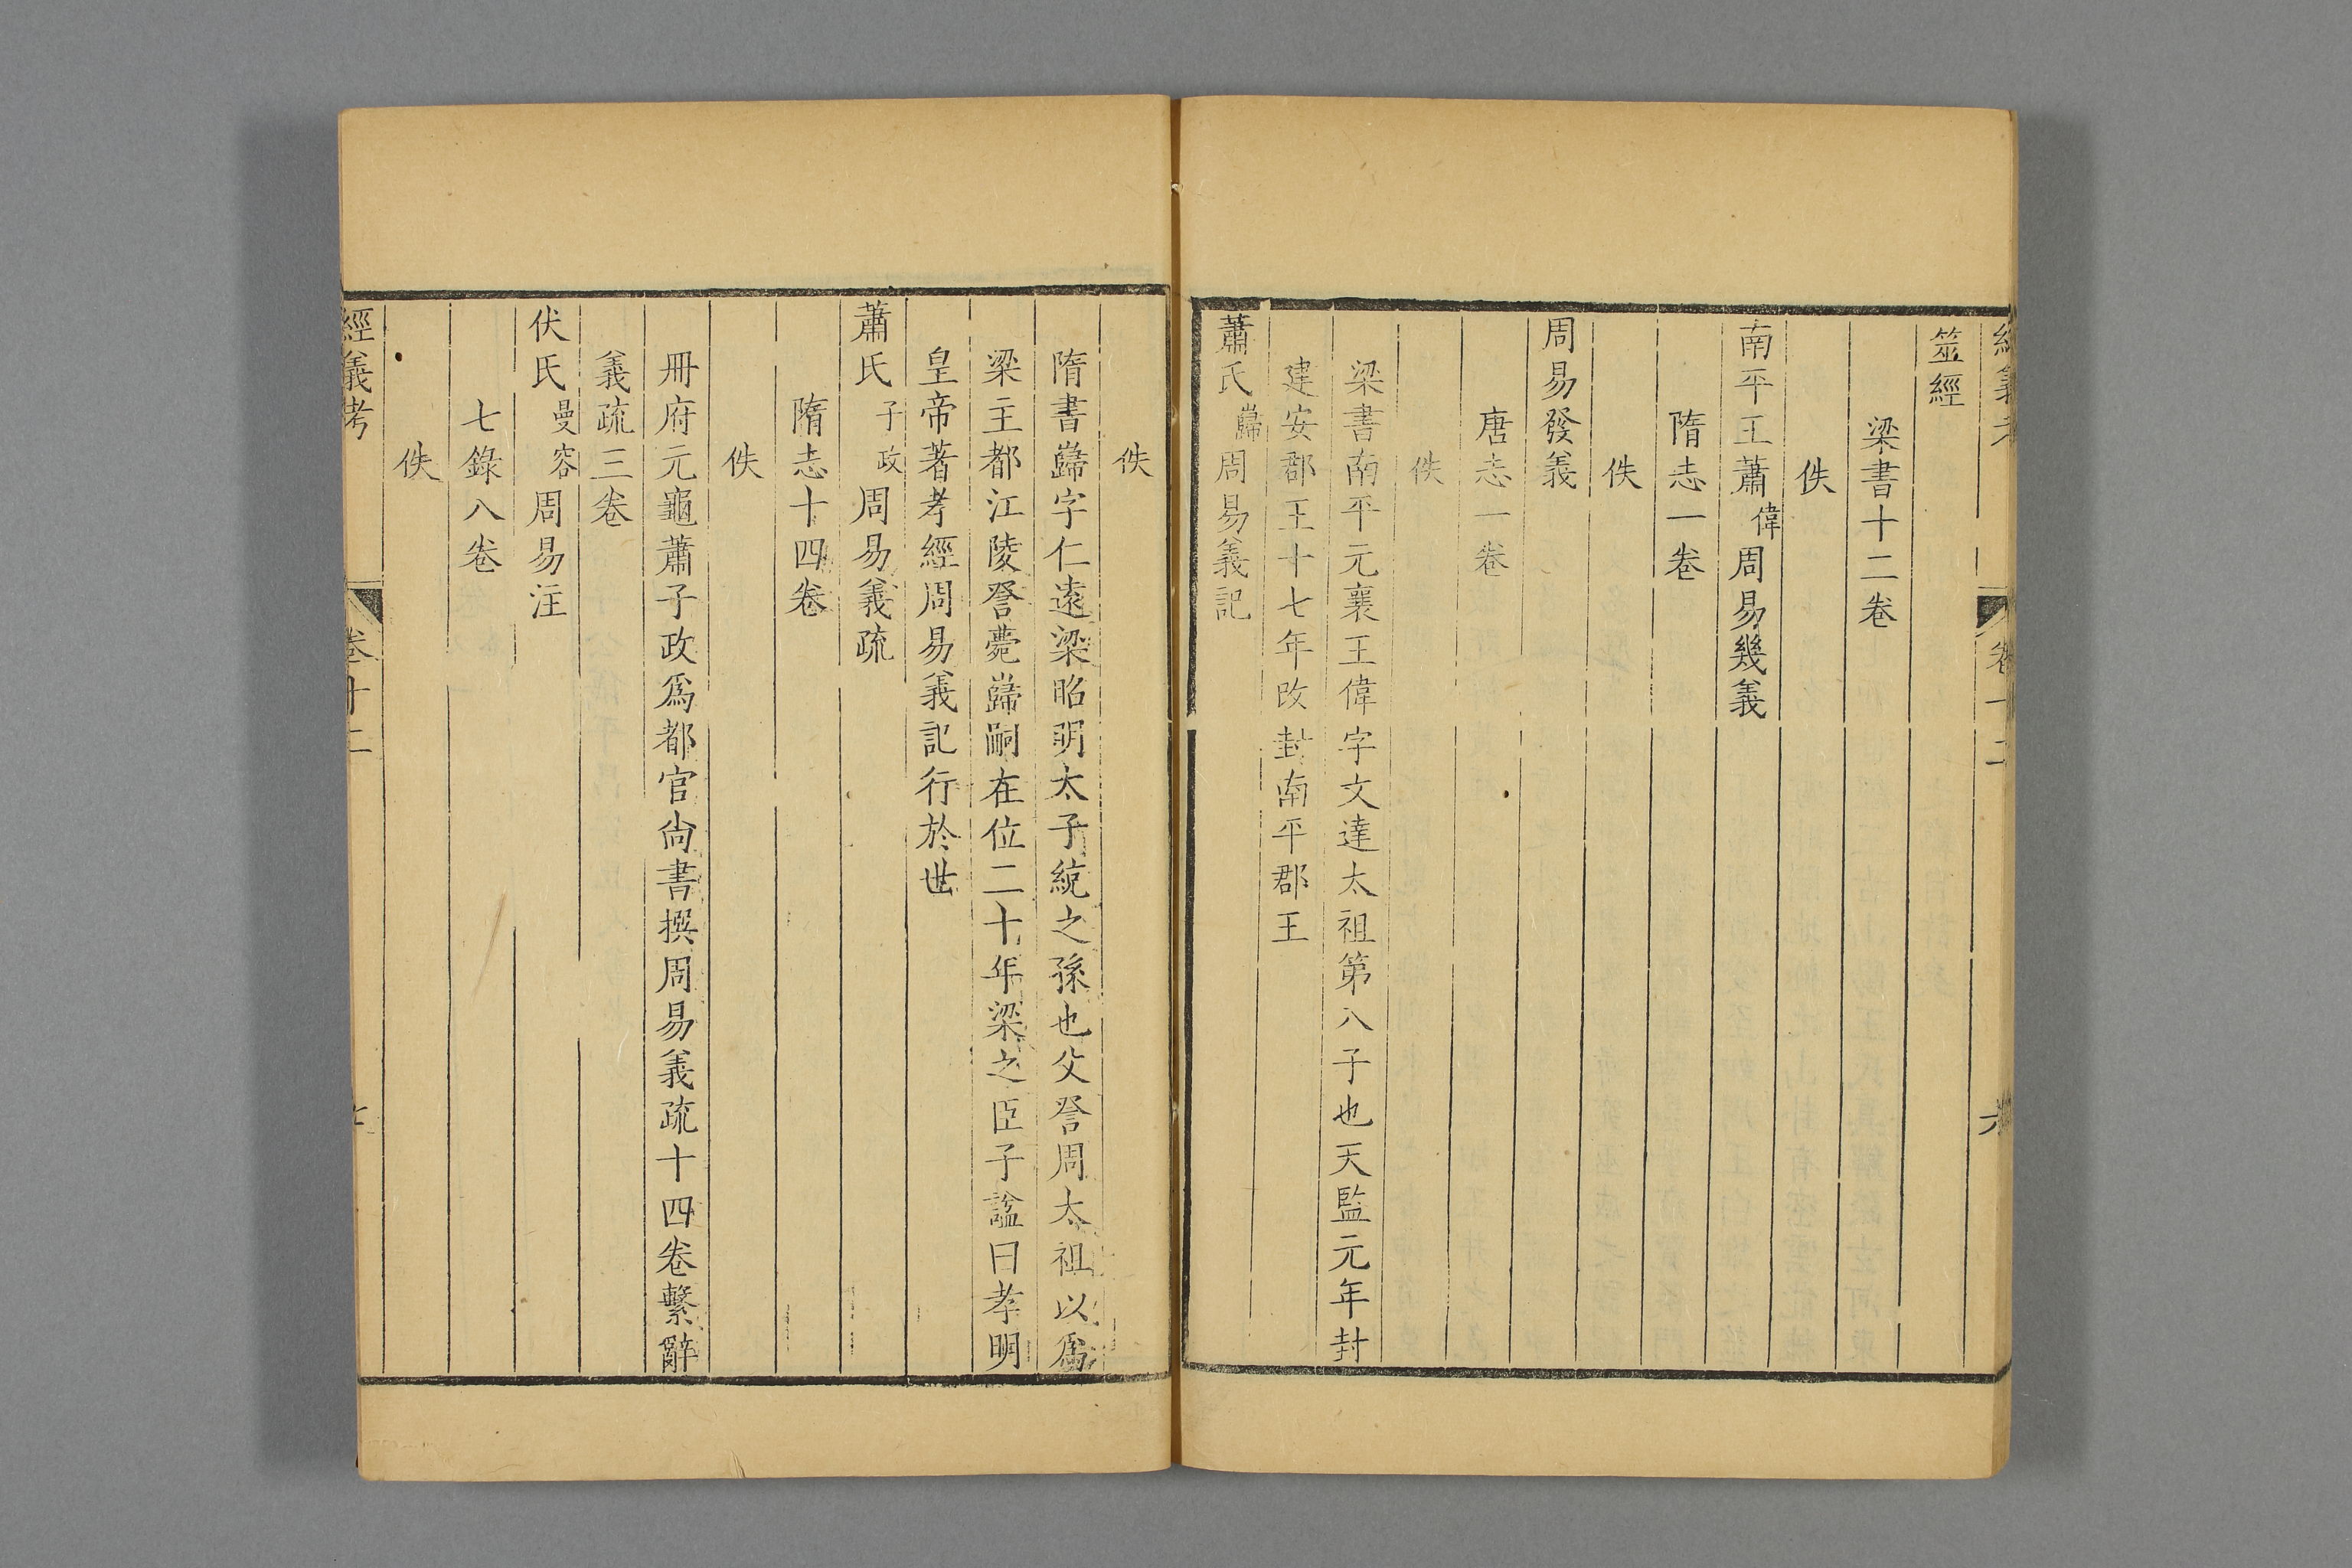 經義考 卷十二 六
筮經
梁書十二卷
佚
南平王蕭偉周易幾義
隋志一卷
佚
周易發義
唐志一卷
佚
梁書南平元襄王偉字文達太祖第八子也天監元年封
建安郡王十七年改封南平郡王
蕭氏巋周易義記
佚
隋書巋字仁遠梁昭明太子統之孫也父詧周太祖以爲
梁主都江陵詧薨巋嗣在位二十年梁之臣子諡曰孝明
皇帝著孝經周易義記行於世
蕭氏子政周易義疏
隋志十四卷
佚
冊府元龜蕭子政爲都官尙書撰周易義疏十四卷繫辭
義疏三卷
伏氏曼容周易注
七錄八卷
佚
經義考 卷十二 七